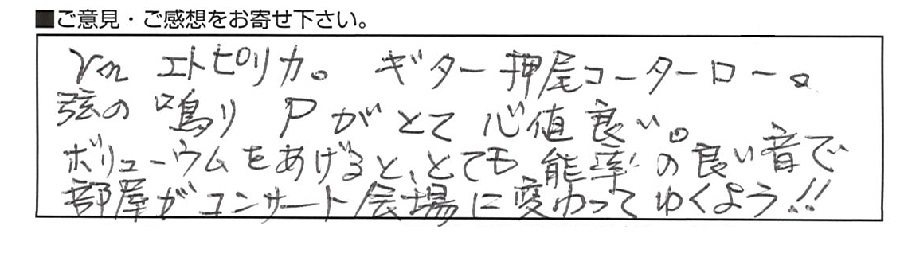 ■ご意見・ご感想をお寄せ下さい。
Vn エトピリカ。ギター押尾コーターロー。
弦の鳴り Pがとて心値良い。
ボリューウムをあげると、とても能率の良い音で
部屋がコンサート会場に変わってゆくよう!!